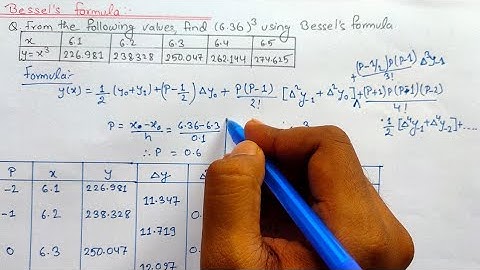 Bessel's formula:-
Q. From the following values, find (6.36)³ using Bessel's formula
x 6.1 6.2 6.3 6.4 6.5
y=x³ 226.981 238.328 250.047 262.144 274.625
Formula:-
+ (P-1/2)P(P-1)/3! Δ³y₋₁
y(x) = 1/2 (y₀+y₁) + (P-1/2) Δy₀ + P(P-1)/2! [Δ²y₋₁ + Δ²y₀] + (P+1)P(P-1)(P-2)/4!
· 1/2 [Δ⁴y₋₁+Δ⁴y₋₂]+....
P = x₀-x₀/h = 6.36-6.3/0.1
∴ P = 0.6
P x y Δy
-2 6.1 226.981
11.347
-1 6.2 238.328
11.719
0 6.3 250.047
12.097